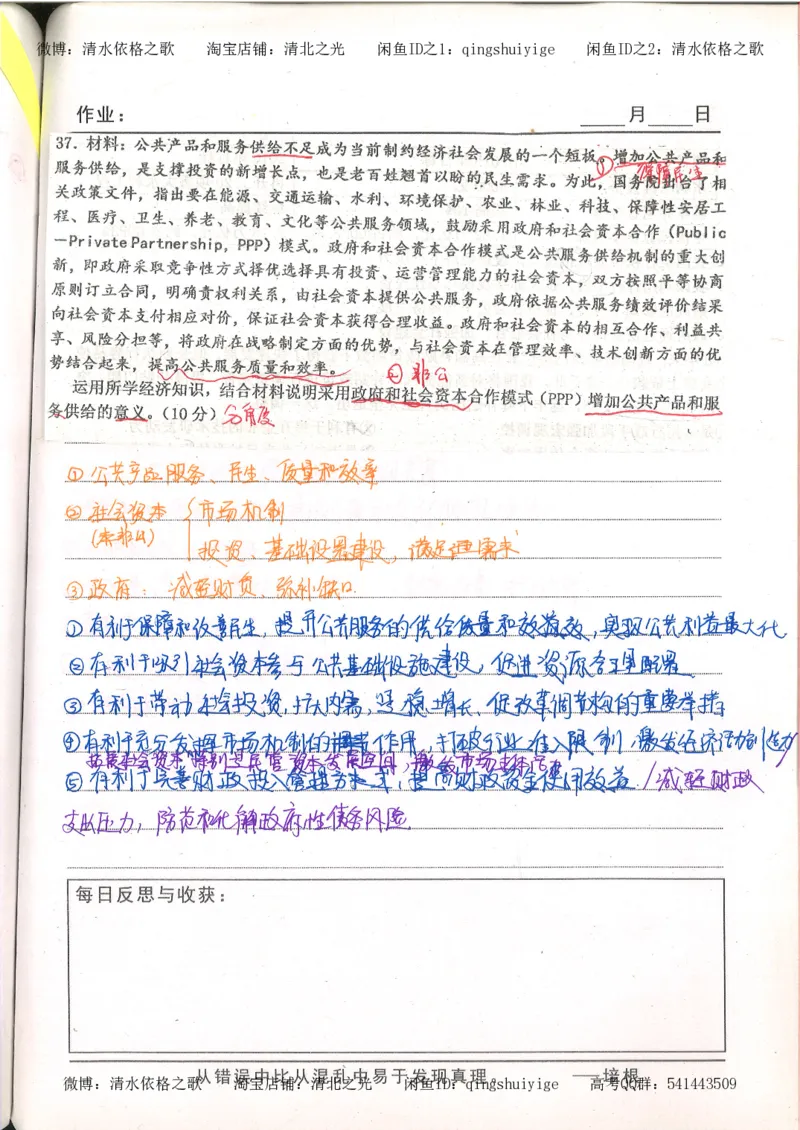 微博：清水依格之歌 淘宝店铺：清北之光 闲鱼ID之1：qingshuiyige 闲鱼ID之2：清水依格之歌
作业： 月 日
37．材料：公共产品和服务供给不足成为当前制约经济社会发展的一个短板。增加公共产品和
① 保障民生
服务供给，是支撑投资的新增长点，也是老百姓翘首以盼的民生需求。为此，国务院出台了相
关政策文件，指出要在能源、交通运输、水利、环境保护、农业、林业、科技、保障性安居工
程、医疗、卫生、养老、教育、文化等公共服务领域，鼓励采用政府和社会资本合作（Public
－Private Partnership，PPP）模式。政府和社会资本合作模式是公共服务供给机制的重大创
新，即政府采取竞争性方式择优选择具有投资、运营管理能力的社会资本，双方按照平等协商
原则订立合同，明确责权利关系，由社会资本提供公共服务，政府依据公共服务绩效评价结果
向社会资本支付相应对价，保证社会资本获得合理收益。政府和社会资本的相互合作、利益共
享、风险分担等，将政府在战略制定方面的优势，与社会资本在管理效率、技术创新方面的优
势结合起来，提高公共服务质量和效率。
② 非公
运用所学经济知识，结合材料说明采用政府和社会资本合作模式（PPP）增加公共产品和服
务供给的意义。（10分） 分角度
① 公共产品服务、民生、质量和效率
② 社会资本 { 市场机制
投资、基础设施建设，满足需求
③ 政府：减轻财负、弥补缺口
① 有利于保障和改善民生，提升公共服务的供给质量和效率，实现公共利益最大化
② 有利于吸引社会资本参与公共基础设施建设，促进资源合理配置
③ 有利于带动社会投资，扩大内需，是稳增长、促改革调结构的重要举措
④ 有利于充分发挥市场机制的作用，打破行业准入限制，激发经济活力创造力
拓展社会资本特别是民营资本发展空间，激发市场主体活力
⑤ 有利于完善财政投入管理方式，提高财政资金使用效益 / 减轻财政
支出压力，防范和化解政府性债务风险
每日反思与收获：
从错误中比从混乱中易于发现真理。 ——培根
微博：清水依格之歌 淘宝店铺：清北之光 闲鱼ID之1：qingshuiyige 高考QQ群：541443509